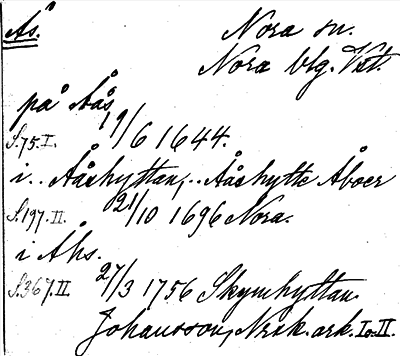 Ås.
Nora sn.
Nora blg. Vstl.
på Åås
S.75.I. 19/6 1644.
i.. Ååshyttan,.. Ååshytte Åboer
S.197.II. 21/10 1696 Nora.
i Åhs.
S.367.II 27/3 1756 Skymhyttan.
Johansson, Nzsk. ark. I o. II.